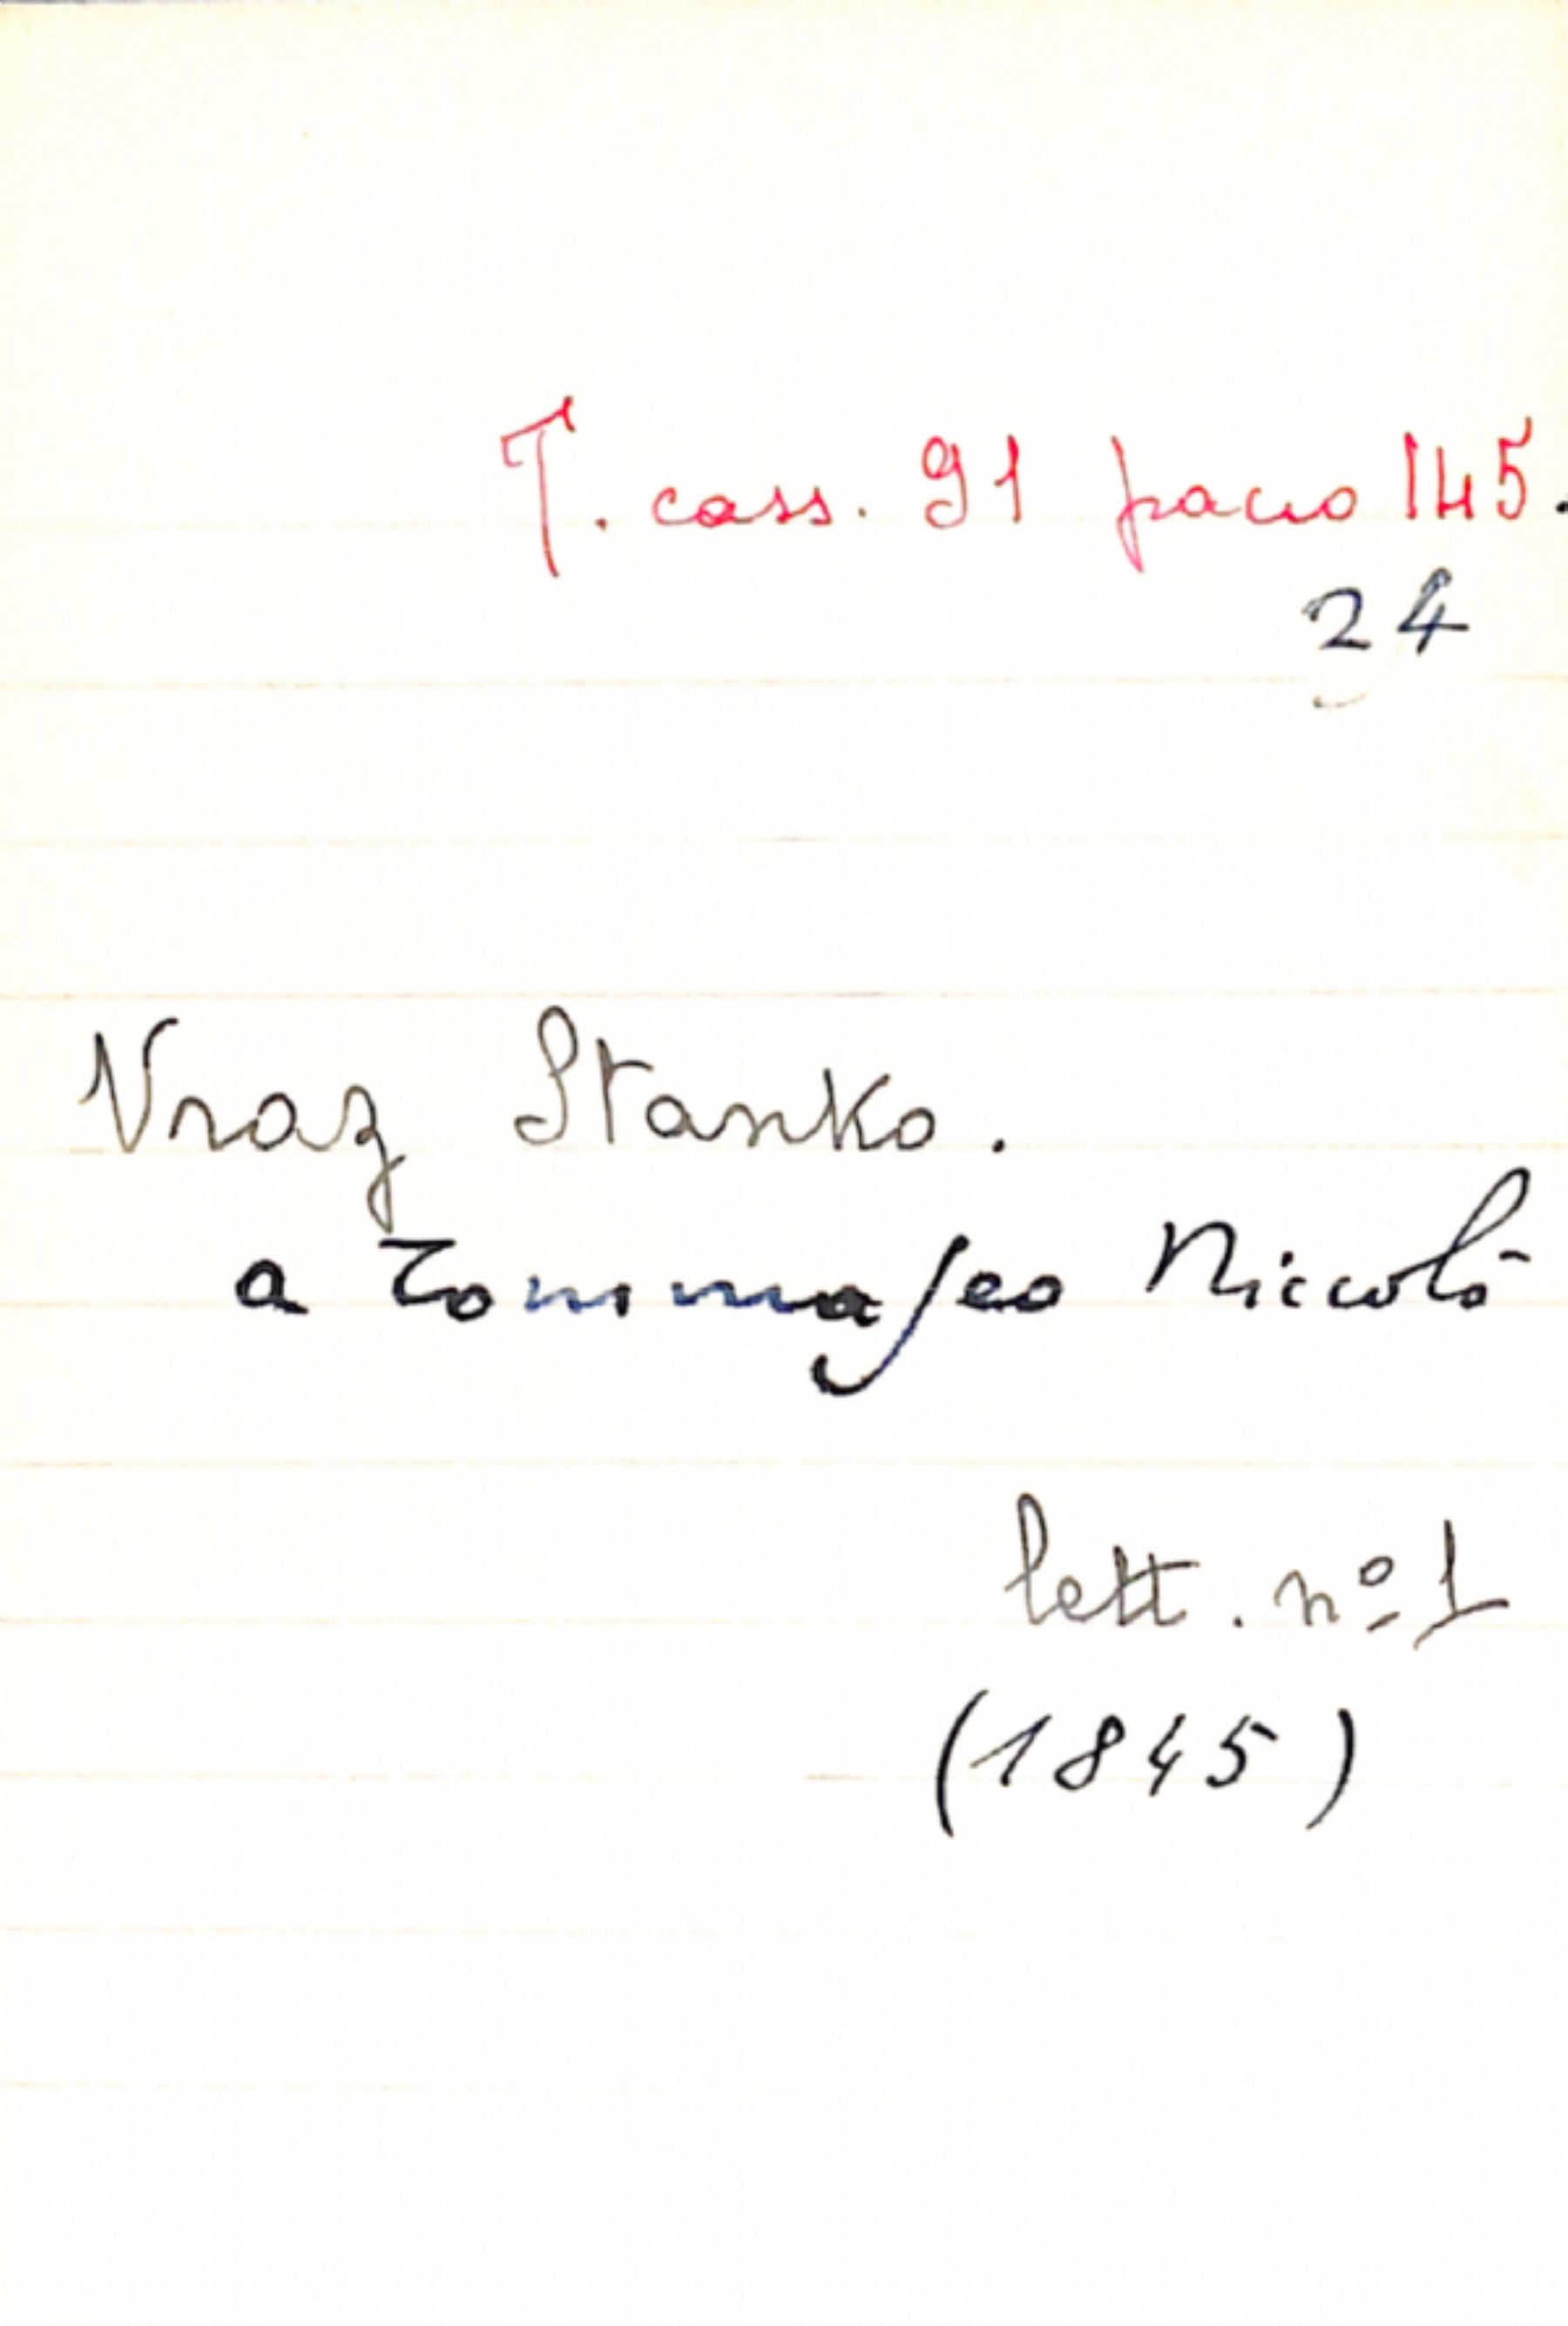 T. cass. 91 pacco 145.
24
Vraz Stanko.
a Tommaseo Niccolò
lett. nº 1
(1845)